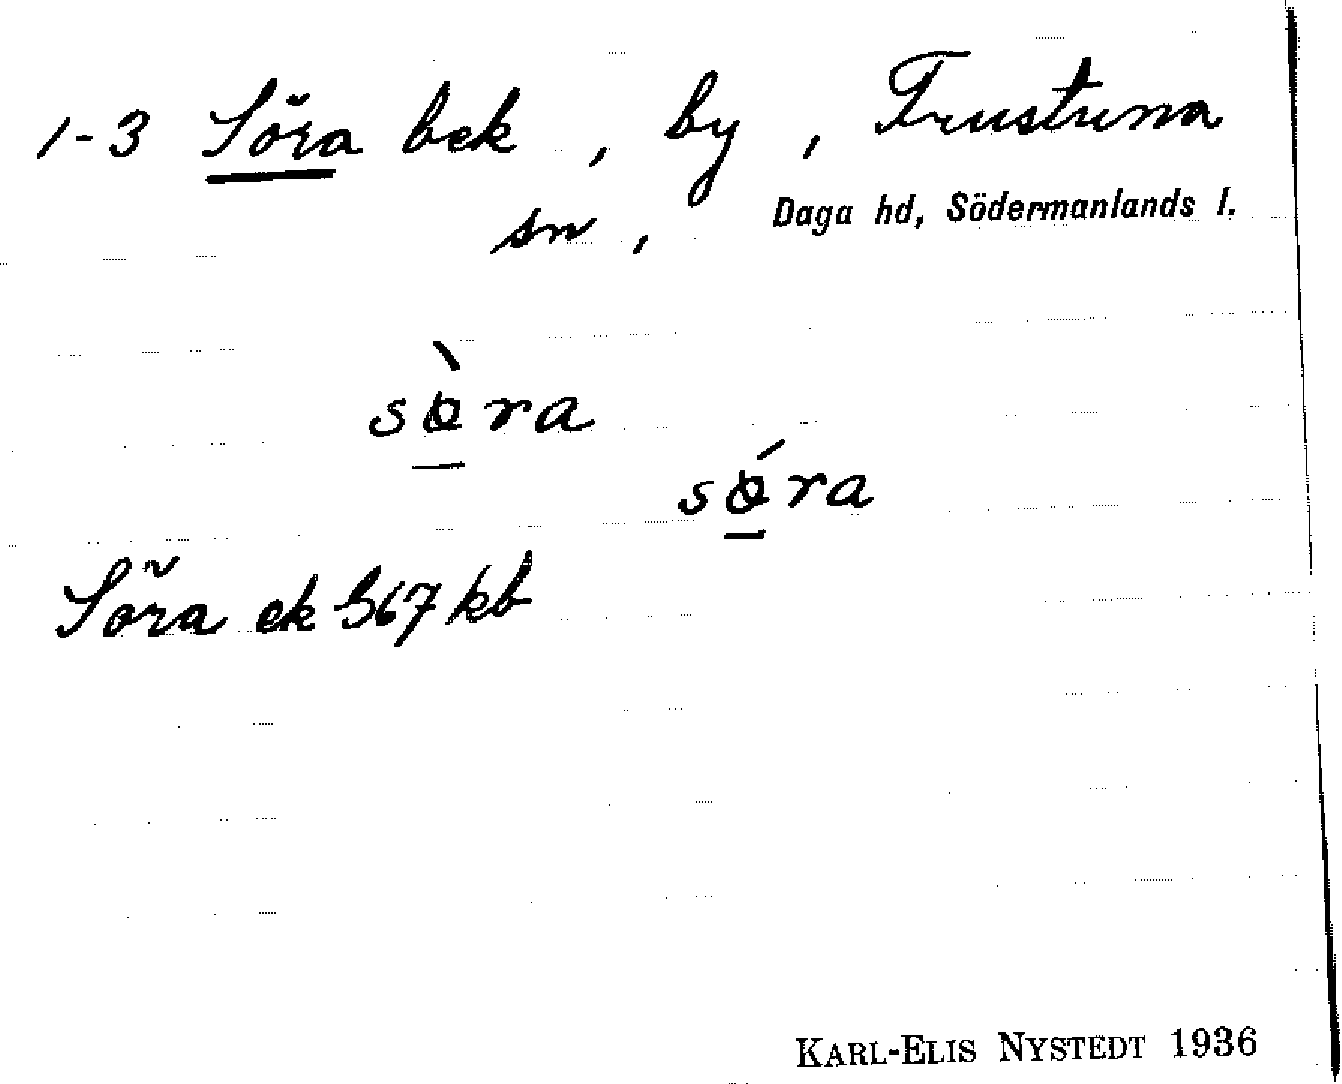 1-3 Söra bek , by , Frustuna
sn , Daga hd, Södermanlands l.
sø̀ra
sǿra
Söra ek 567 kb
KARL-ELIS NYSTEDT 1936